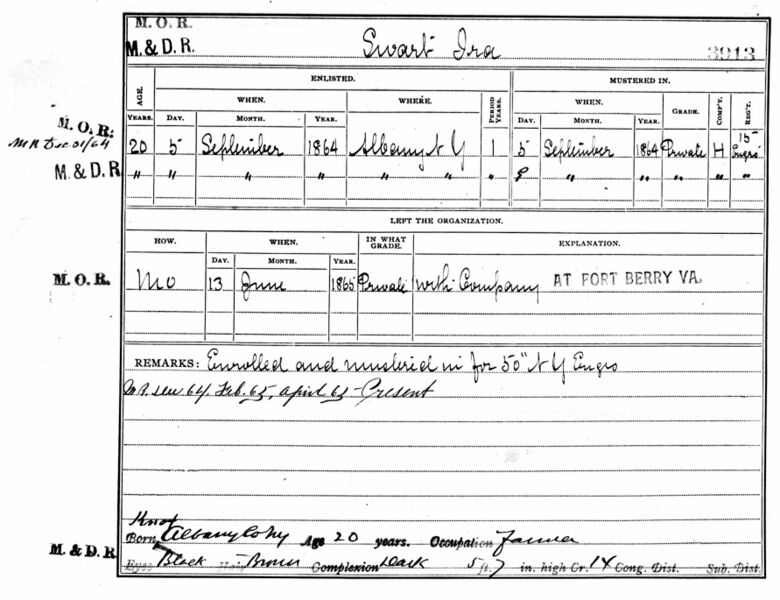 M. O. R.
M. & D. R. Swart Ira 3913
ENLISTED. MUSTERED IN.
AGE. WHEN. WHERE. PERIOD YEARS. WHEN. GRADE. COMP'Y. REG'T.
YEARS. DAY. MONTH. YEAR. DAY. MONTH. YEAR.
M. O. R. 20 5 September 1864 Albany N Y 1 5 September 1864 Private H 15 Engrs
M R Dec 31/64
M. & D. R. " " " " " " " " 8 " " " " "
LEFT THE ORGANIZATION.
HOW. WHEN. IN WHAT GRADE. EXPLANATION.
DAY. MONTH. YEAR.
M. O. R. M O 13 June 1865 Private with Company AT FORT BERRY VA.
REMARKS: Enrolled and mustered in for 50" N Y Engrs
M R. Dec 64, Feb. 65, april 65 - Present
Knox
Born, Albany Co Ny Age 20 years. Occupation Farmer
M. & D. R. Eyes Black Hair Brown Complexion Dark 5 ft. 7 in. high Cr. 14 Cong. Dist. Sub. Dist.